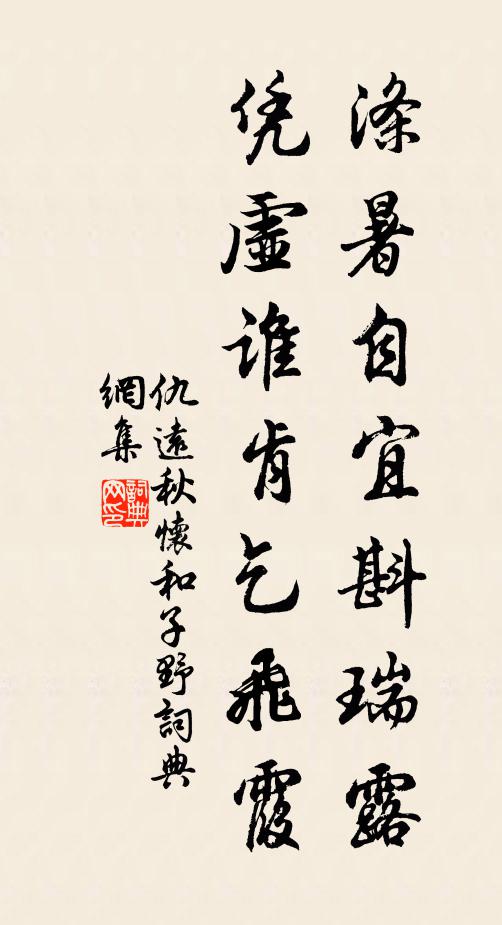 涤暑自宜斟瑞露
凭虚谁肯乞飛霞
仇遠秋懷和子野詞典
網集
詞典網印